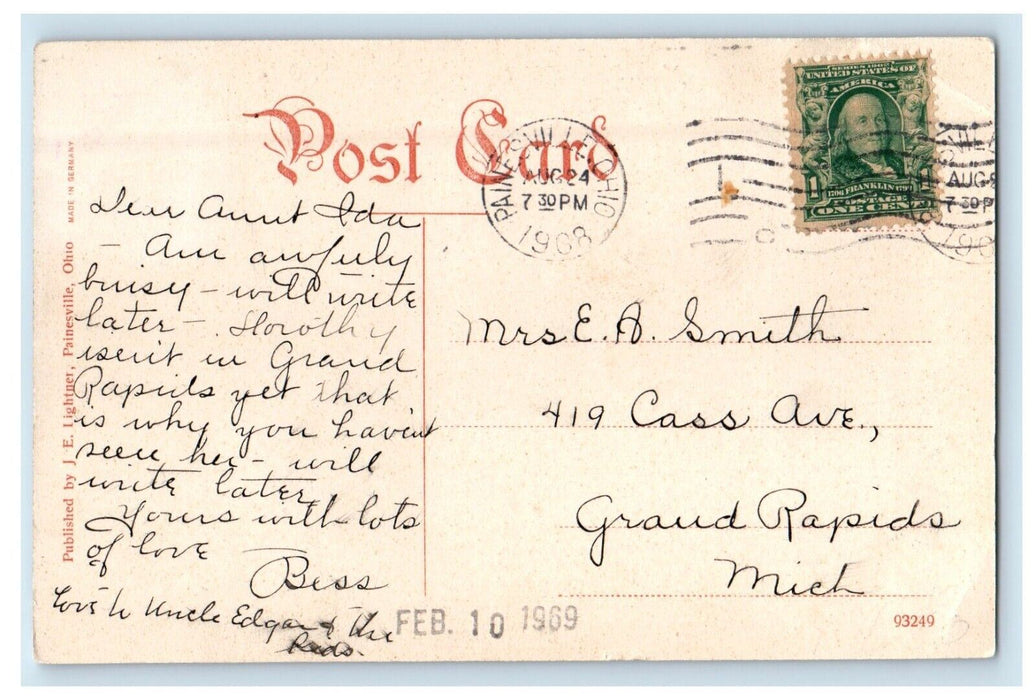 Post Card
MADE IN GERMANY
Published by J. E. Lightner, Painesville, Ohio
PAINESVILLE, OHIO
AUG 24
7 30 PM
1908
SERIES 1902
UNITED STATES OF
AMERICA
1706 FRANKLIN 1790
POSTAGE
1
ONE CENT
AUG
7 30 P
190
Dear Aunt Ida
- Am awfully
buisy - will write
later - Dorothy
isent in Grand
Rapids yet that
is why you havent
seen her - will
write later.
Yours with lots
of love
Bess
Love to Uncle Edgar & the
Mrs E. A. Smith
419 Cass Ave.,
Grand Rapids
Mich
FEB. 10 1969
93249